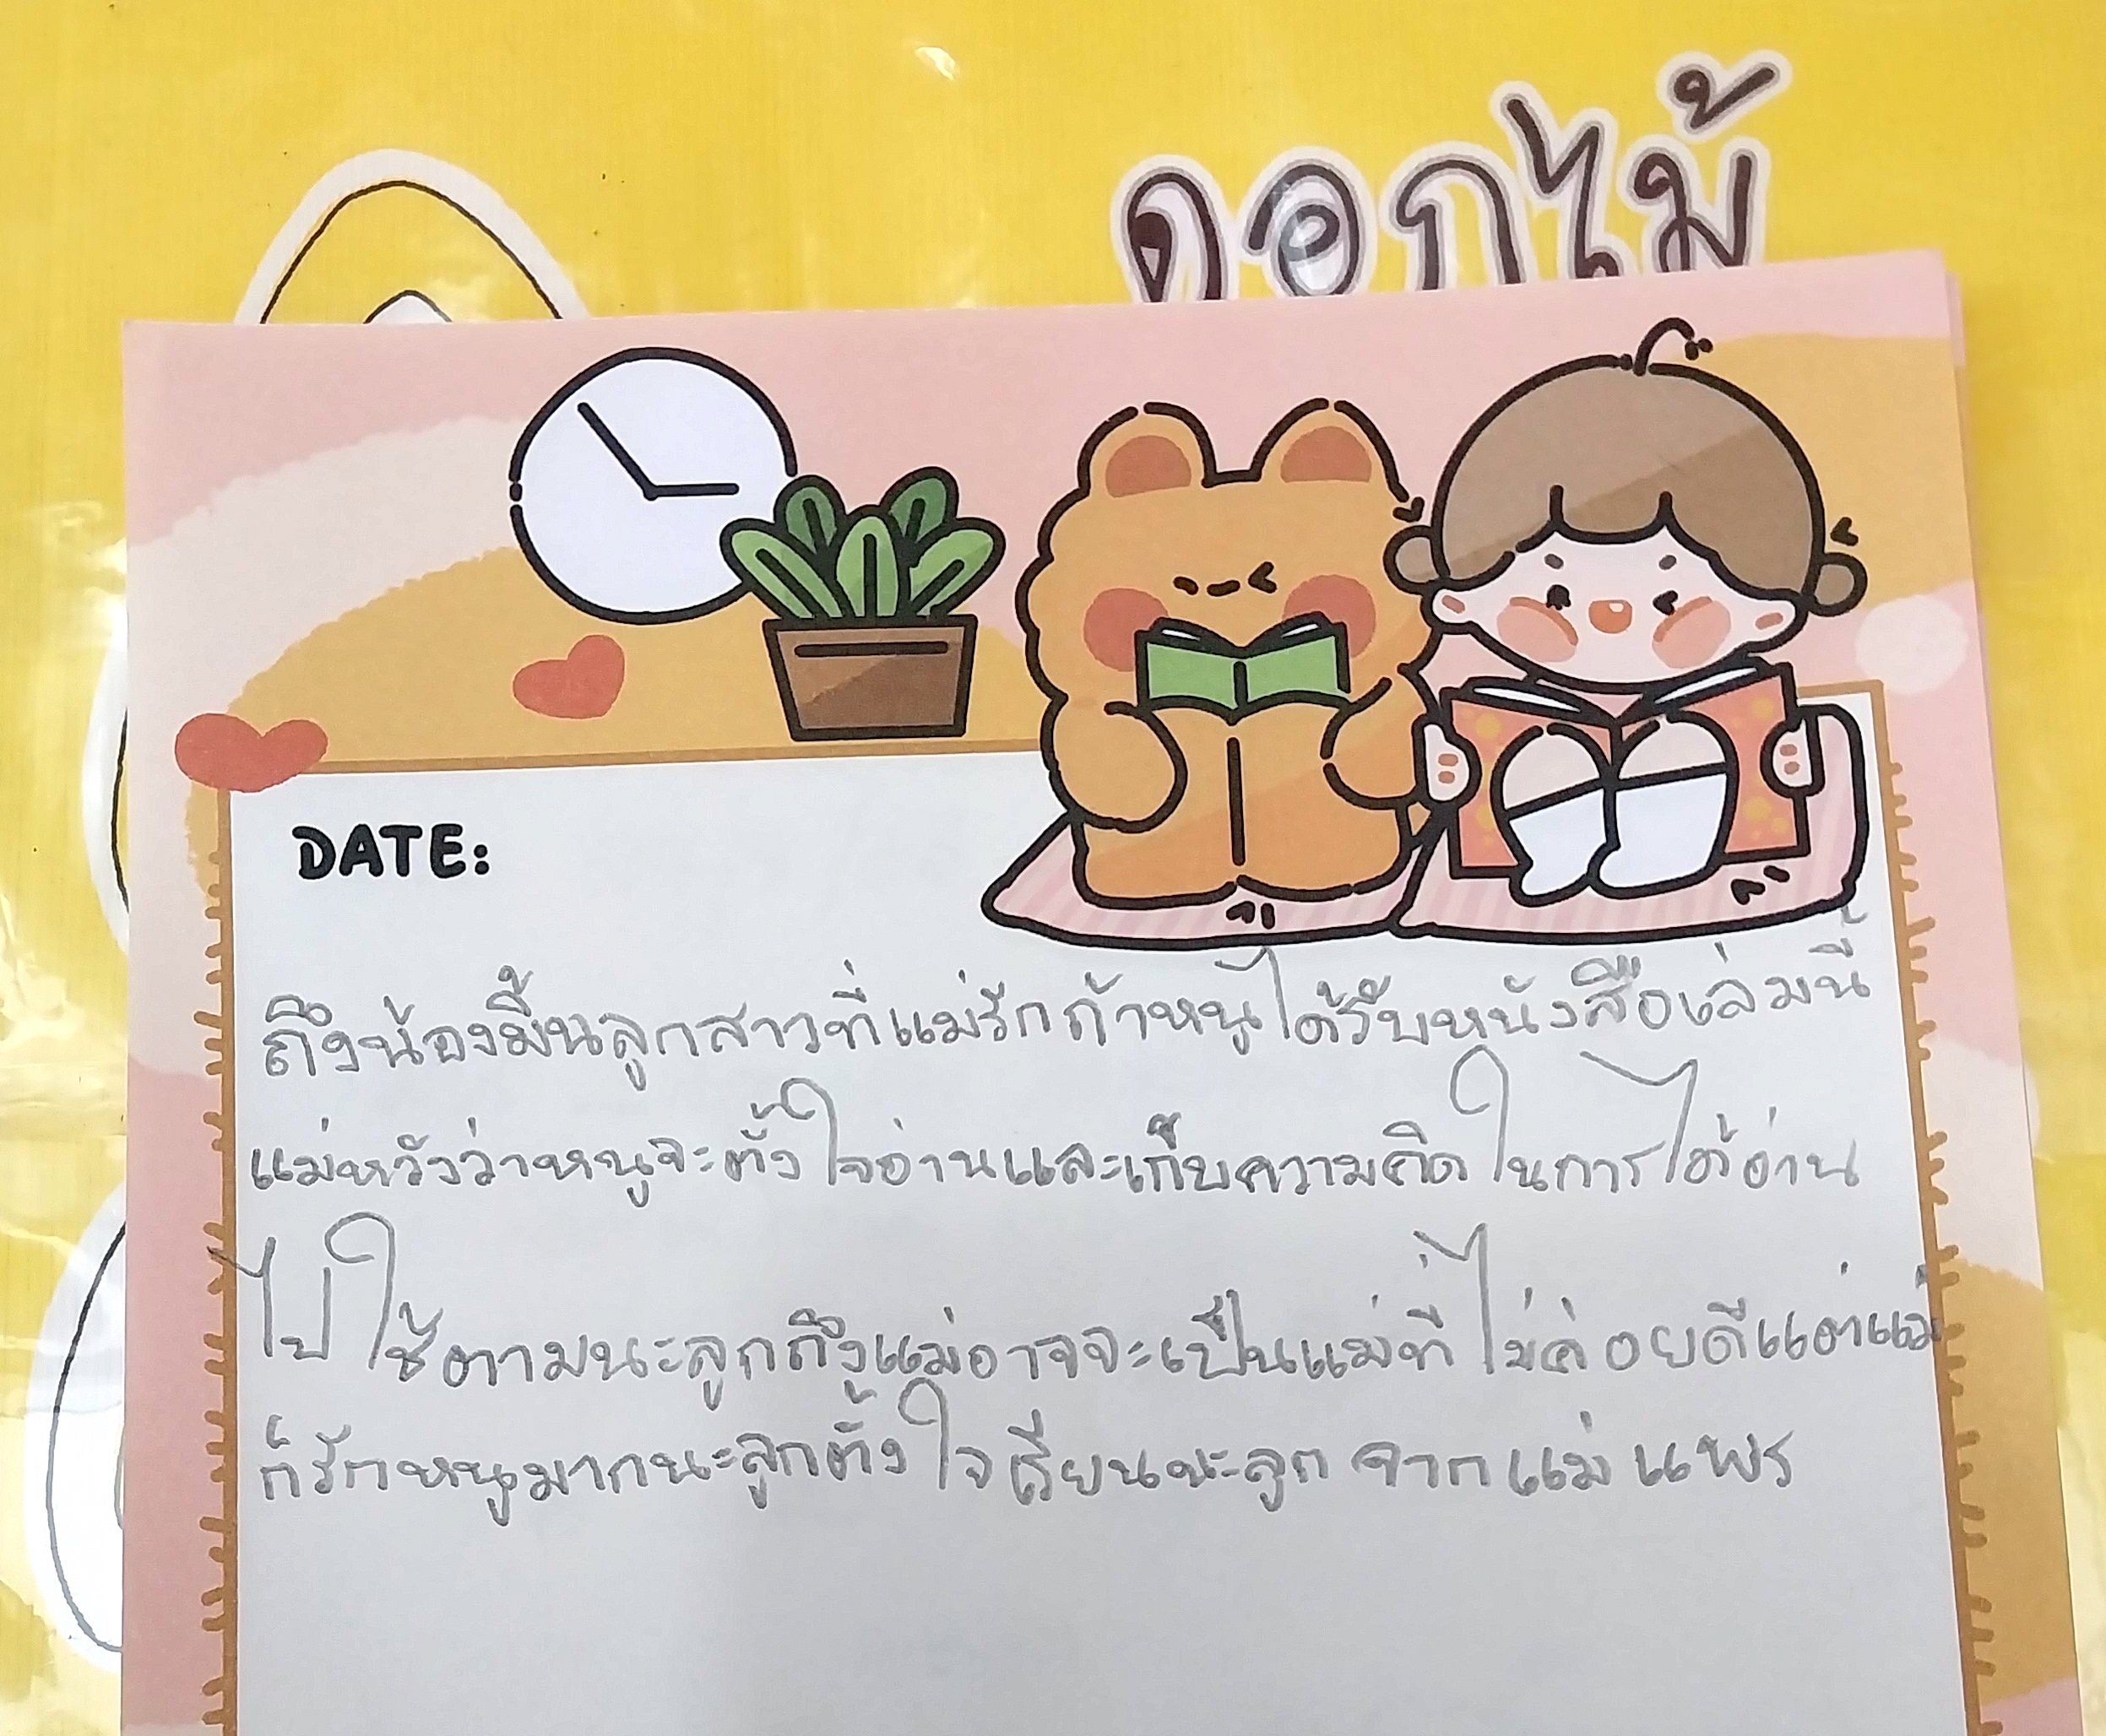 ดอกไม้
DATE:
ถึงน้องมิ้นลูกสาวที่แม่รักถ้าหนูได้รับหนังสือเล่มนี้
แม่หวังว่าหนูจะตั้งใจอ่านและเก็บความคิดในการได้อ่าน
ไปใช้ตามนะลูกถึงแม่อาจจะเป็นแม่ที่ไม่ค่อยดีแต่แม่
ก็รักหนูมากนะลูกตั้งใจเรียนนะลูก จากแม่แพร